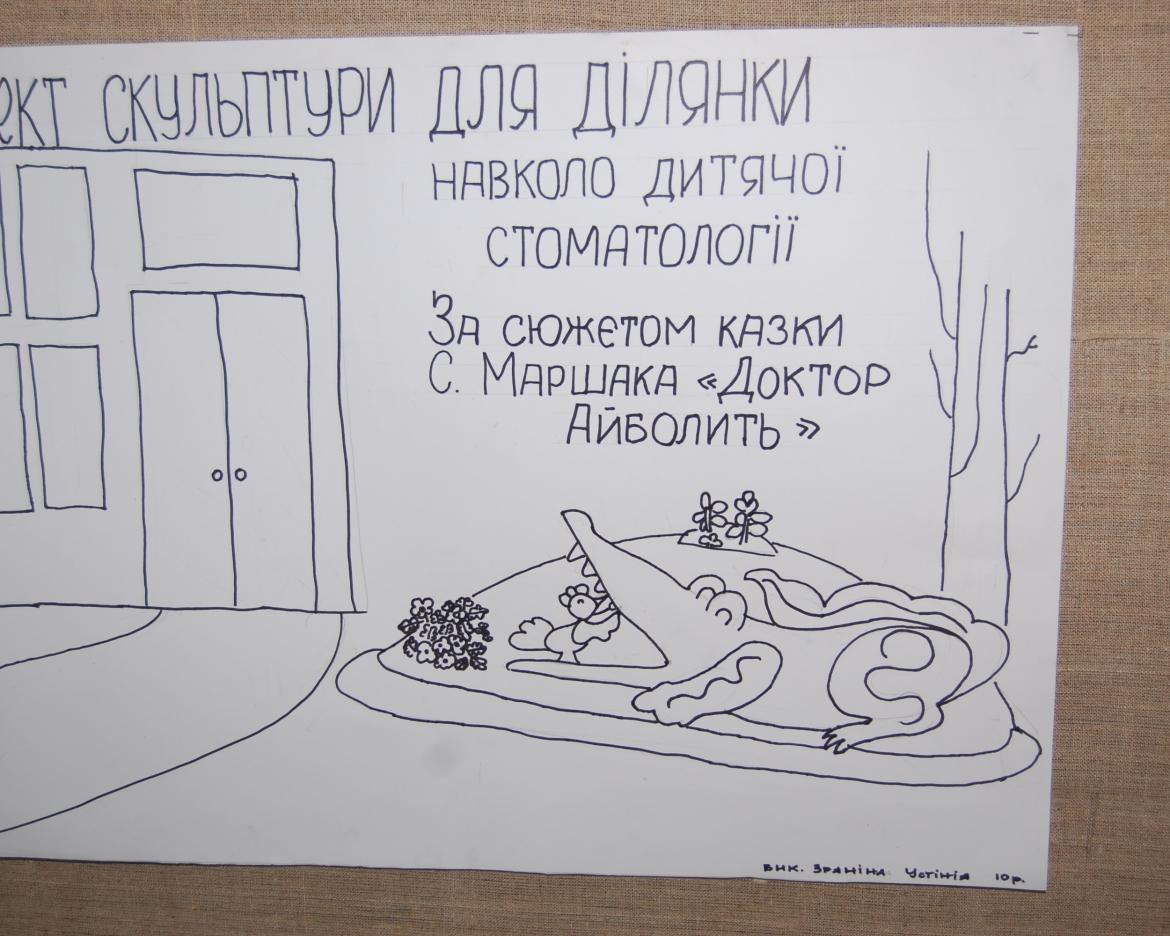 ект скульптури для ділянки
навколо дитячої
стоматології
За сюжетом казки
С. Маршака «Доктор
Айболить»
вик. Зраніна Устінія 10р.